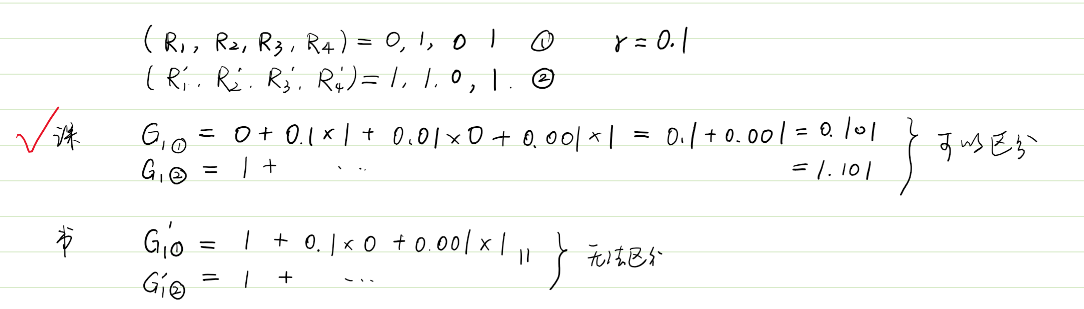 (R₁, R₂, R₃, R₄) = 0, 1, 0 1 ① γ = 0.1
(R₁′. R₂′. R₃′. R₄′) = 1, 1. 0, 1. ②
✓ 课 G₁① = 0 + 0.1 × 1 + 0.01 × 0 + 0.001 × 1 = 0.1 + 0.001 = 0.101 } 可以区分
G₁② = 1 + ... = 1.101
书 G₁①′ = 1 + 0.1 × 0 + 0.001 × 1 〃 } 无法区分
G₁②′ = 1 + ...